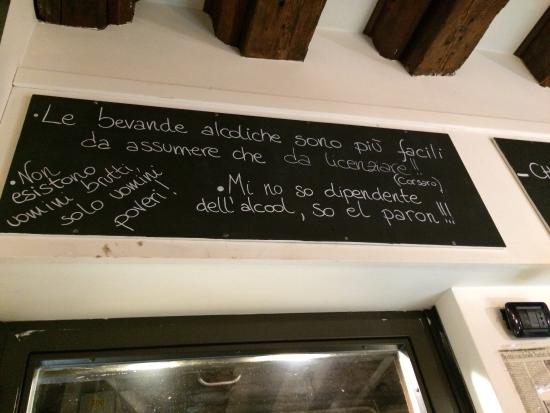 •Le bevande alcoliche sono più facili
da assumere che da licenziare!!
(Corsaro)
•Non
esistono
uomini brutti,
solo uomini
poveri!
•Mi no so dipendente
dell'alcool, so el paron!!!
-CH